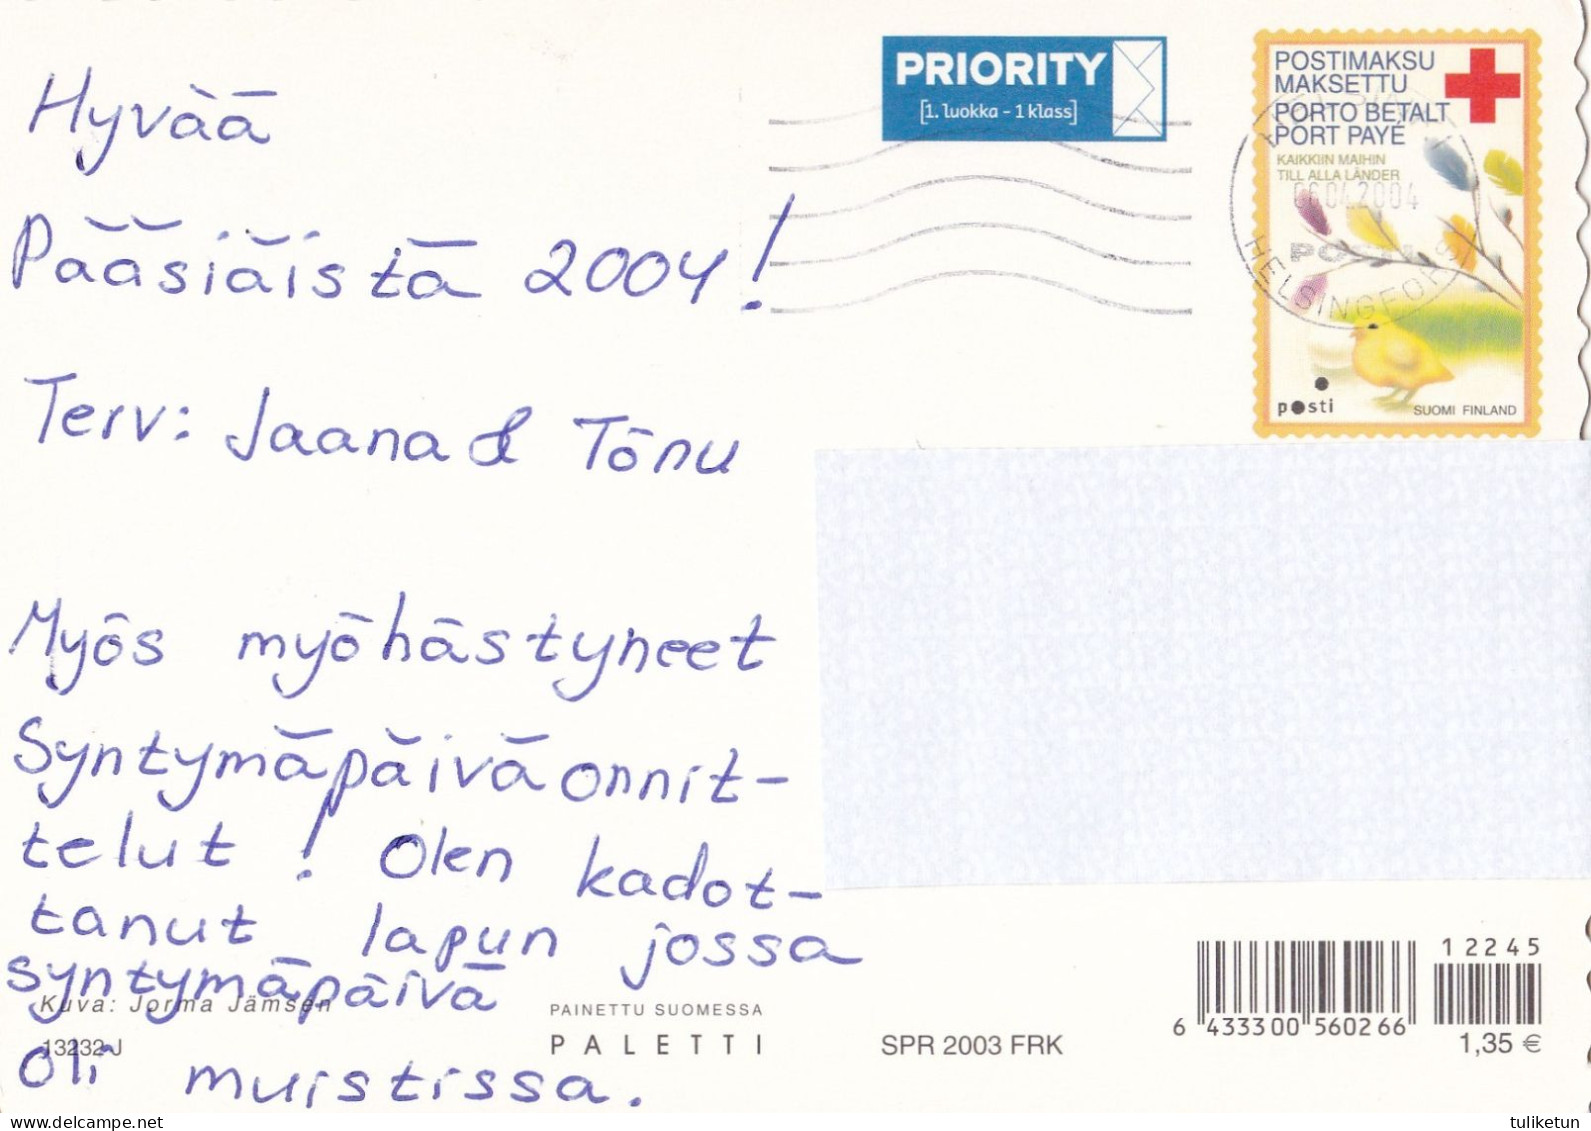 Hyvää
Pääsiäistä 2004!
Terv: Jaana & Tõnu
Myös myöhästyneet
Syntymäpäiväonnit-
telut! Olen kadot-
tanut lapun jossa
syntymäpäivä
oli muistissa.
PRIORITY
[1. luokka - 1 klass]
POSTIMAKSU
MAKSETTU
PORTO BETALT
PORT PAYÉ
KAIKKIIN MAIHIN
TILL ALLA LÄNDER
06.04.2004
POSTI
HELSINGFORS
posti
SUOMI FINLAND
Kuva: Jorma Jämsen
13232-J
PAINETTU SUOMESSA
PALETTI
SPR 2003 FRK
12245
6 433300 560266
1,35 €
delcampe.net
tuliketun